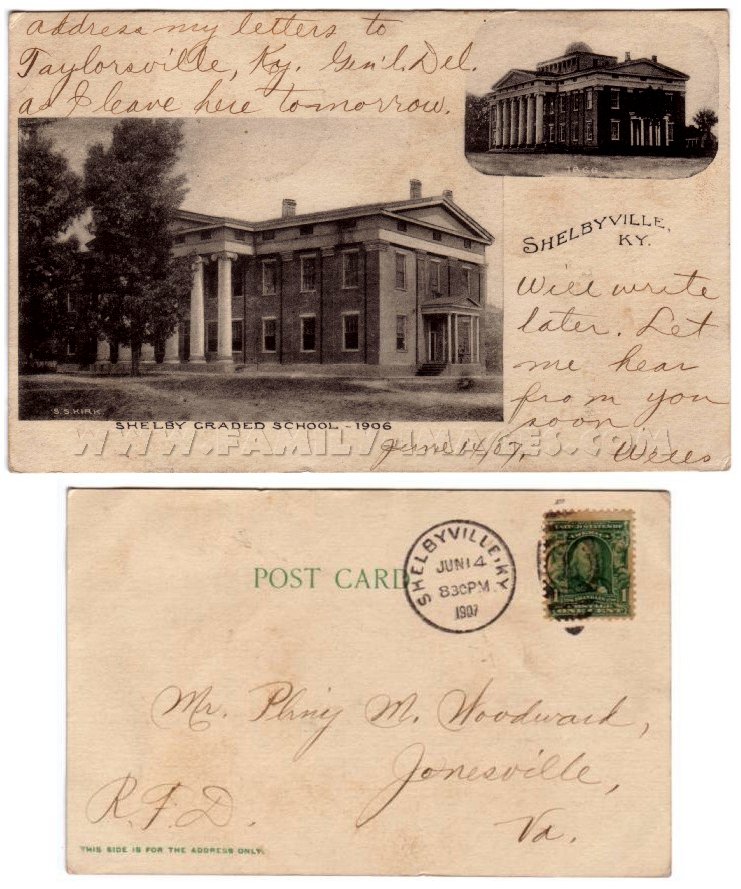 address my letters to
Taylorsville, Ky. Gen'l. Del.
as I leave here tomorrow.
SHELBYVILLE,
KY.
Will write
later. Let
me hear
from you
soon
S.S. KIRK
SHELBY GRADED SCHOOL - 1906
June 14/07.
WWW.FAMILY-IMAGES.COM
POST CARD
SHELBYVILLE, KY
JUN 14
830PM
1907
ONE CENT
Mr. Pliny M. Woodward,
Jonesville,
R.F.D.
Va.
THIS SIDE IS FOR THE ADDRESS ONLY.